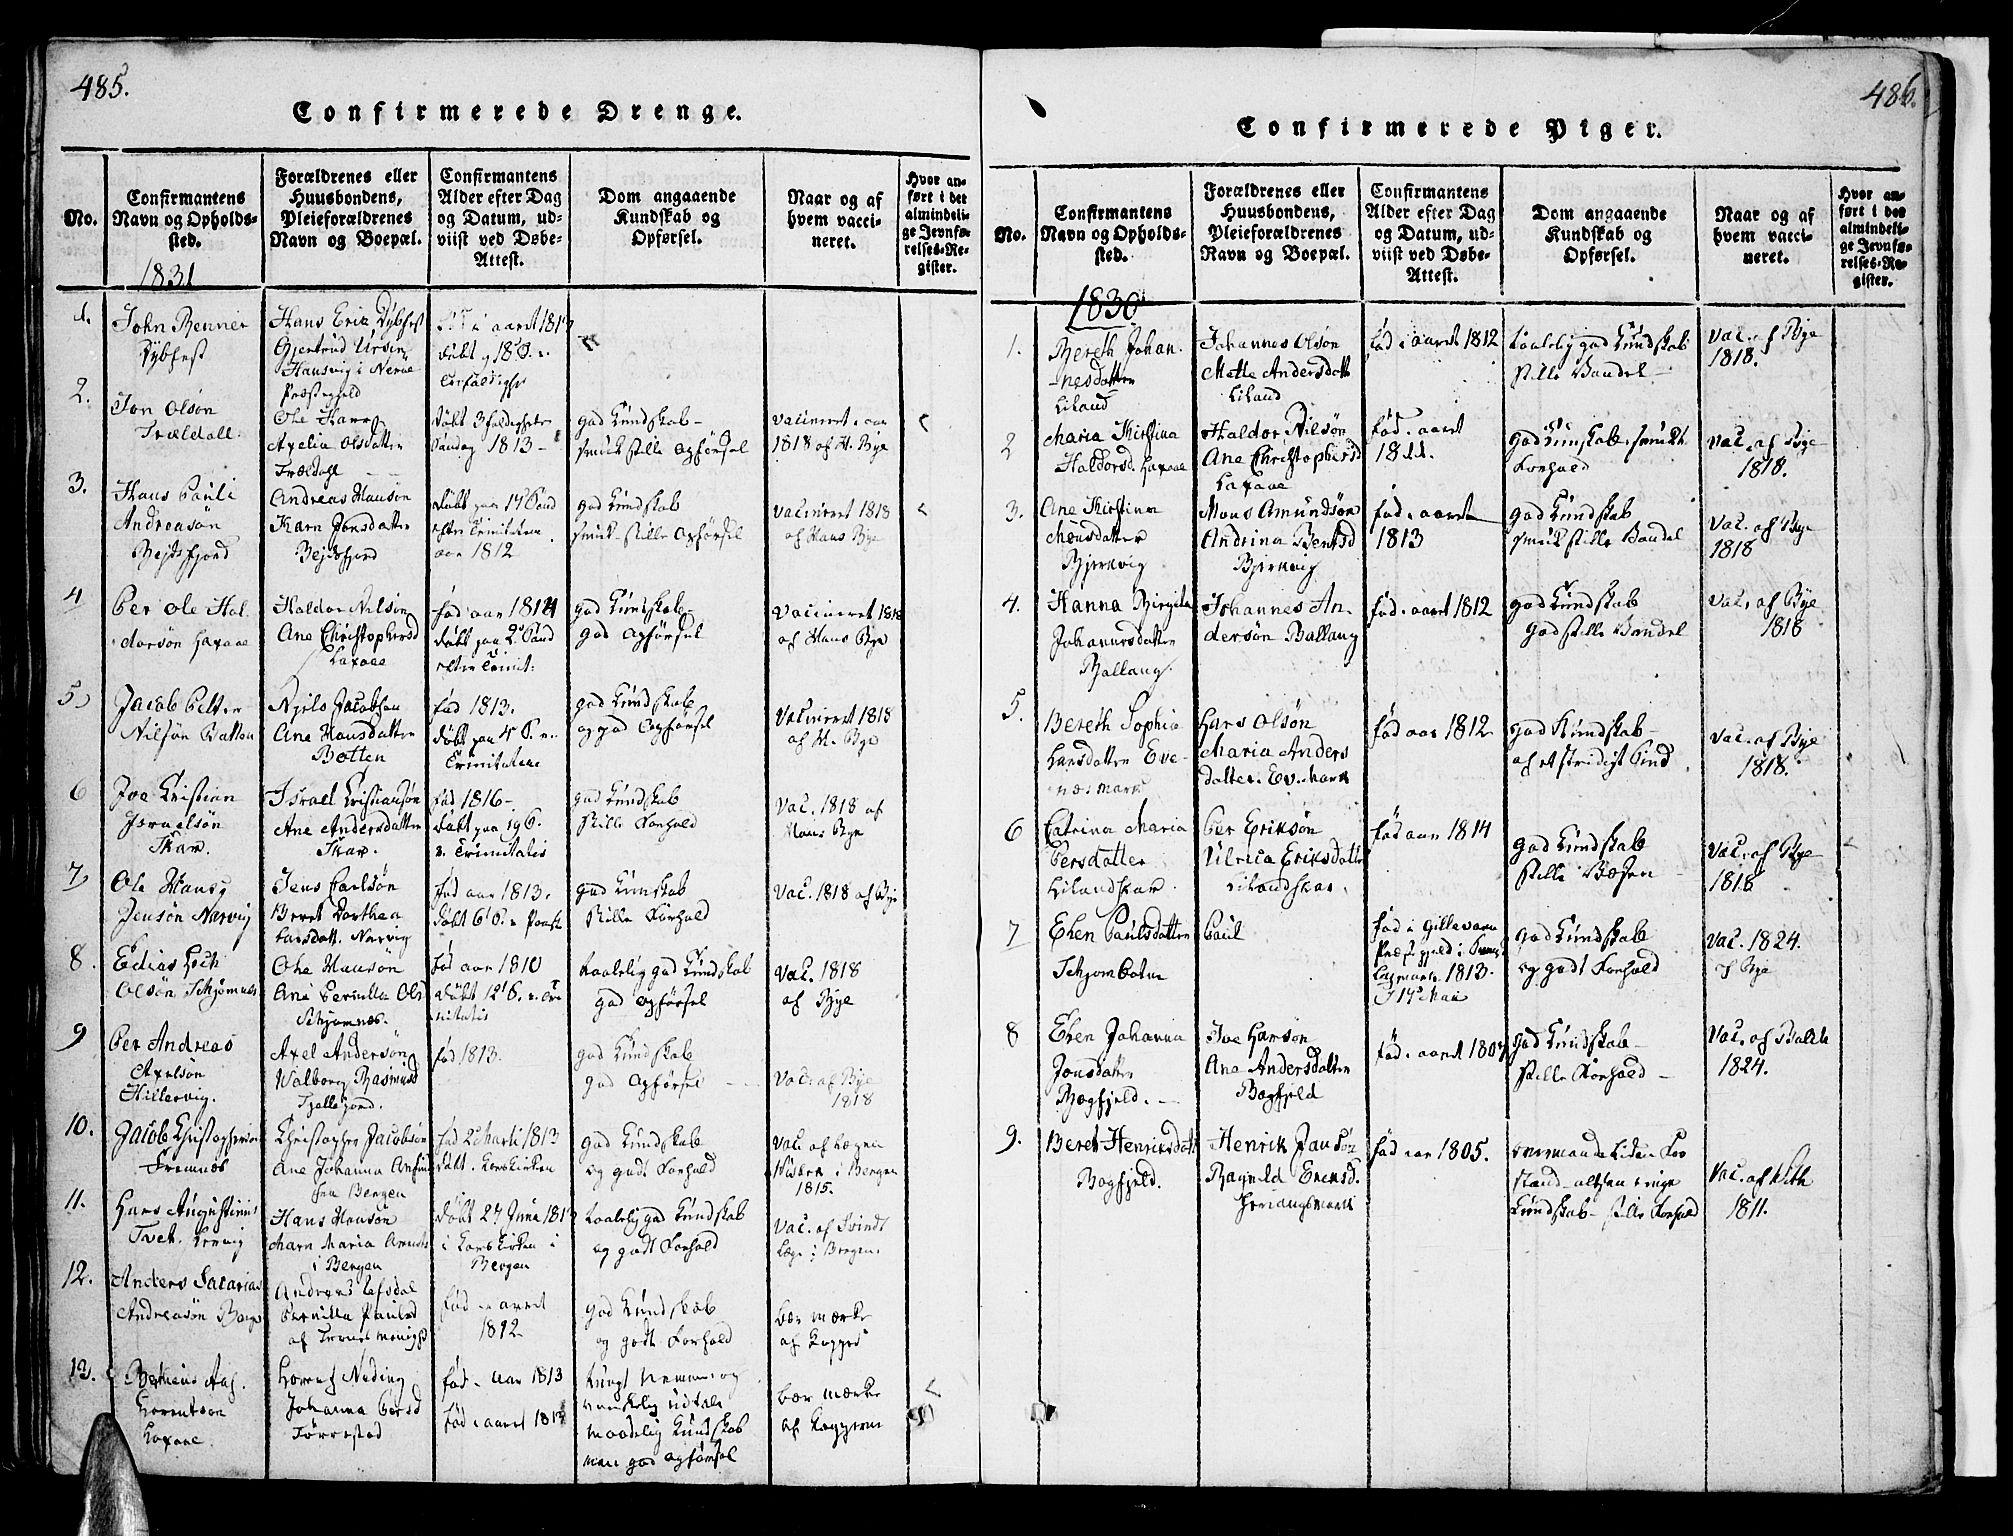 485.
Confirmerede Drenge.
No.
Confirmantens Navn og Opholds-sted.
Forældrenes eller Huusbondens, Pleieforældrenes Navn og Boepæl.
Confirmantens Alder efter Dag og Datum, ud-viist ved Døbe-Attest.
Dom angaaende Kundskab og Opførsel.
Naar og af hvem vacci-neret.
Hvor an-ført i det almindeli-ge Jevnfø-relses-Re-gister.
1831
1.
John Benner
Dybfest
Hans Eric Dybfest
Gjertrud Ursin
Hansvig i
Præstegjeld
2.
Jon Olsøn
Trældall.
Ole Hans
Axelia Olsdatter
Trældahl
døbt 3foldigheds
Søndag 1813
god Kundskab
smuk stille Opførsel
vacineret i aar
1818 af H. Bye
3.
Hans Pauli
Andreasøn
Bejsfjord
Andreas Hansøn
Karn Jonsdatter
Bejsfjord
døbt paa 17 Sønd
efter Trinitatem
aar 1812
god Kundskab
smuk stille Opførsel
vacineret 1818
af Hans Bye
4
Per Ole Hal-
dorsøn Laxaae
Haldor Nilsøn
Ane Christophersd
Laxaae
fød aar 1814
døbt paa 2 Sønd
efter Trinit:
god Kundskab
god Opførsel
vacineret 1818
af Hans Bye
5
Jacob Petter
Nilsøn Batten
Njels Jacobsen
Ane Hansdatter
Botten
fød 1813.
døbt paa 4 S. e.
Trinitatem
god Kundskab
og god Opførsel
vacineret 1818
af H. Bye
6
Joe Kristian
Israelsøn
Skar.
Israel Kristiansøn
Ane Andersdatter
Skar.
fød 1816
døbt paa 19 S.
e. Trinitatis
god Kundskab
stille Forhold
vac. 1818 af
Hans Bye
7
Ole Hans
Jensøn Narvig
Jens Carlsøn
Beret Dorthea
Larsdatt. Narvig
fød aar 1813.
døbt 6 S. e Paask
god Kundskab
stille Forhold
vac. 1818 af Bye
8.
Edias Hoch
Olsøn Skjomnes
Ole Hansøn
Ane Pernilla Ols
Skjomnes.
fød aar 1810
døbt 12 S. e. Tri
nitatis
taalelig god Kundskab
god Opførsel
vac. 1818
af Bye
9
Per Andreas
Axelsøn
Hillervig.
Axel Andersøn
Walborg Rasmusd
Tjellefjord.
fød 1813.
god Kundskab
god Opførsel
vac. af Bye
1818
10.
Jacob Christophersen
Framnes
Christopher Jacobsøn
Ane Johanna
fra Bergen
fød 2 Marti 1813
døbt i Korskirken
god Kundskab
og godt Forhold
vac af Lægen
i Bergen
1815.
11.
Hans Augustinus
Tvet.
Hans Hansøn
Marn Maria
i Bergen
døbt 27 Junii
i Korskirken i
Bergen
taalelig god Kundskab
og godt Forhold
vac. af
Læge i Bergen.
12.
Anders Sacarias
Andreasøn
Andreas
Pernilla Paulsd
af
fød i aaret
1812
god Kundskab
og godt Forhold
bær mærke
af Kopper
13.
Lorentsøn
Laxaae.
Lorents
Johanna Persd
Tørrestad
fød i aar 1813
fød i aaret
tungt nemme og
vanskelig udtale
maadelig Kundskab
men god Opførsel
bær mærke
af Kopperne
486.
Confirmerede Piger.
No.
Confirmantens Navn og Opholds-sted.
Forældrenes eller Huusbondens, Pleieforældrenes Navn og Boepæl.
Confirmantens Alder efter Dag og Datum, ud-viist ved Døbe-Attest.
Dom angaaende Kundskab og Opførsel.
Naar og af hvem vacci-neret.
Hvor an-ført i det almindeli-ge Jevnfø-relses-Re-gister.
1830
1.
Bereth Johan-
-nesdatter
Liland
Johannes Olsøn
Mette Andersdatt
Liland
fød i aaret 1812
taalelig god Kundskab
stille Vandel
vac. af Bye
1818.
2
Maria Kirstina
Haldorsd. Laxaae
Haldor Nilsøn
Ane Christophersd
Laxaae
fød i aaret
1811.
god Kunskab smukt
Forhold
vac. af Bye
1818.
3.
Ane Kirstina
Monsdatter
Bjerkvig
Mons Amundsøn
Andrina Bentsd
Bjerkvig
fød i aaret
1813
god Kundskab
smuk stille Vandel
vac. af Bye
1818
4.
Hanna Birgita
Johannesdatter
Ballang.
Johannes An-
dersøn Ballang
fød i aaret 1812
god Kundskab
god stille Vandel
vac. af Bye
1818
5.
Bereth Sophia
Larsdatter Eve-
næsmark
Lars Olsøn
Maria Anders
datter. Ev. mark
fød aar 1812
god Kundskab
af et stridigt Sind
vac. af Bye
1818.
6
Catrina Maria
Persdatter
Lilandskar.
Per Eriksøn
Ulrica Eriksdatter
Lilandskar.
fød aar 1814
god Kundskab
stille Væsen
vac. af Bye
1818
7
Elen Paulsdatter
Skjombotn
Paul
fød i Gillevara
Præstegjeld i
1813.
d 17 Mai
god Kundskab
og godt Forhold
vac. 1824.
af Bye
8
Elen Johanna
Jonsdatter
Bogfjeld.
Ive Larsøn
Ane Andersdatter
Bogfjeld
fød i aaret 1807
god Kundskab
stille Forhold
vac. af Balch
1824.
9.
Beret Henriksdatt
Bogfjeld.
Henrik Jansøn
Ragnild Erensd.
Heriangsmark
fød aar 1805.
liden For
stand altsaa ringe
Kundskab stille Forhold
vac. af With
1811.